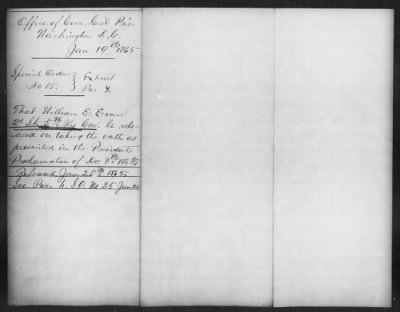 Office of Com. Genl Pris
Washington D.C.
Jan 19th 1865
Special Order } Extract
No 15. } Par X
That William E. Evans
5th Ky Cav. be rele-
ased on taking the oath as
prescribed in the Presidents
Proclamation of Dec 8th 1863
Released Jan 25th 1865
See Par. S.O. No 25 Jan